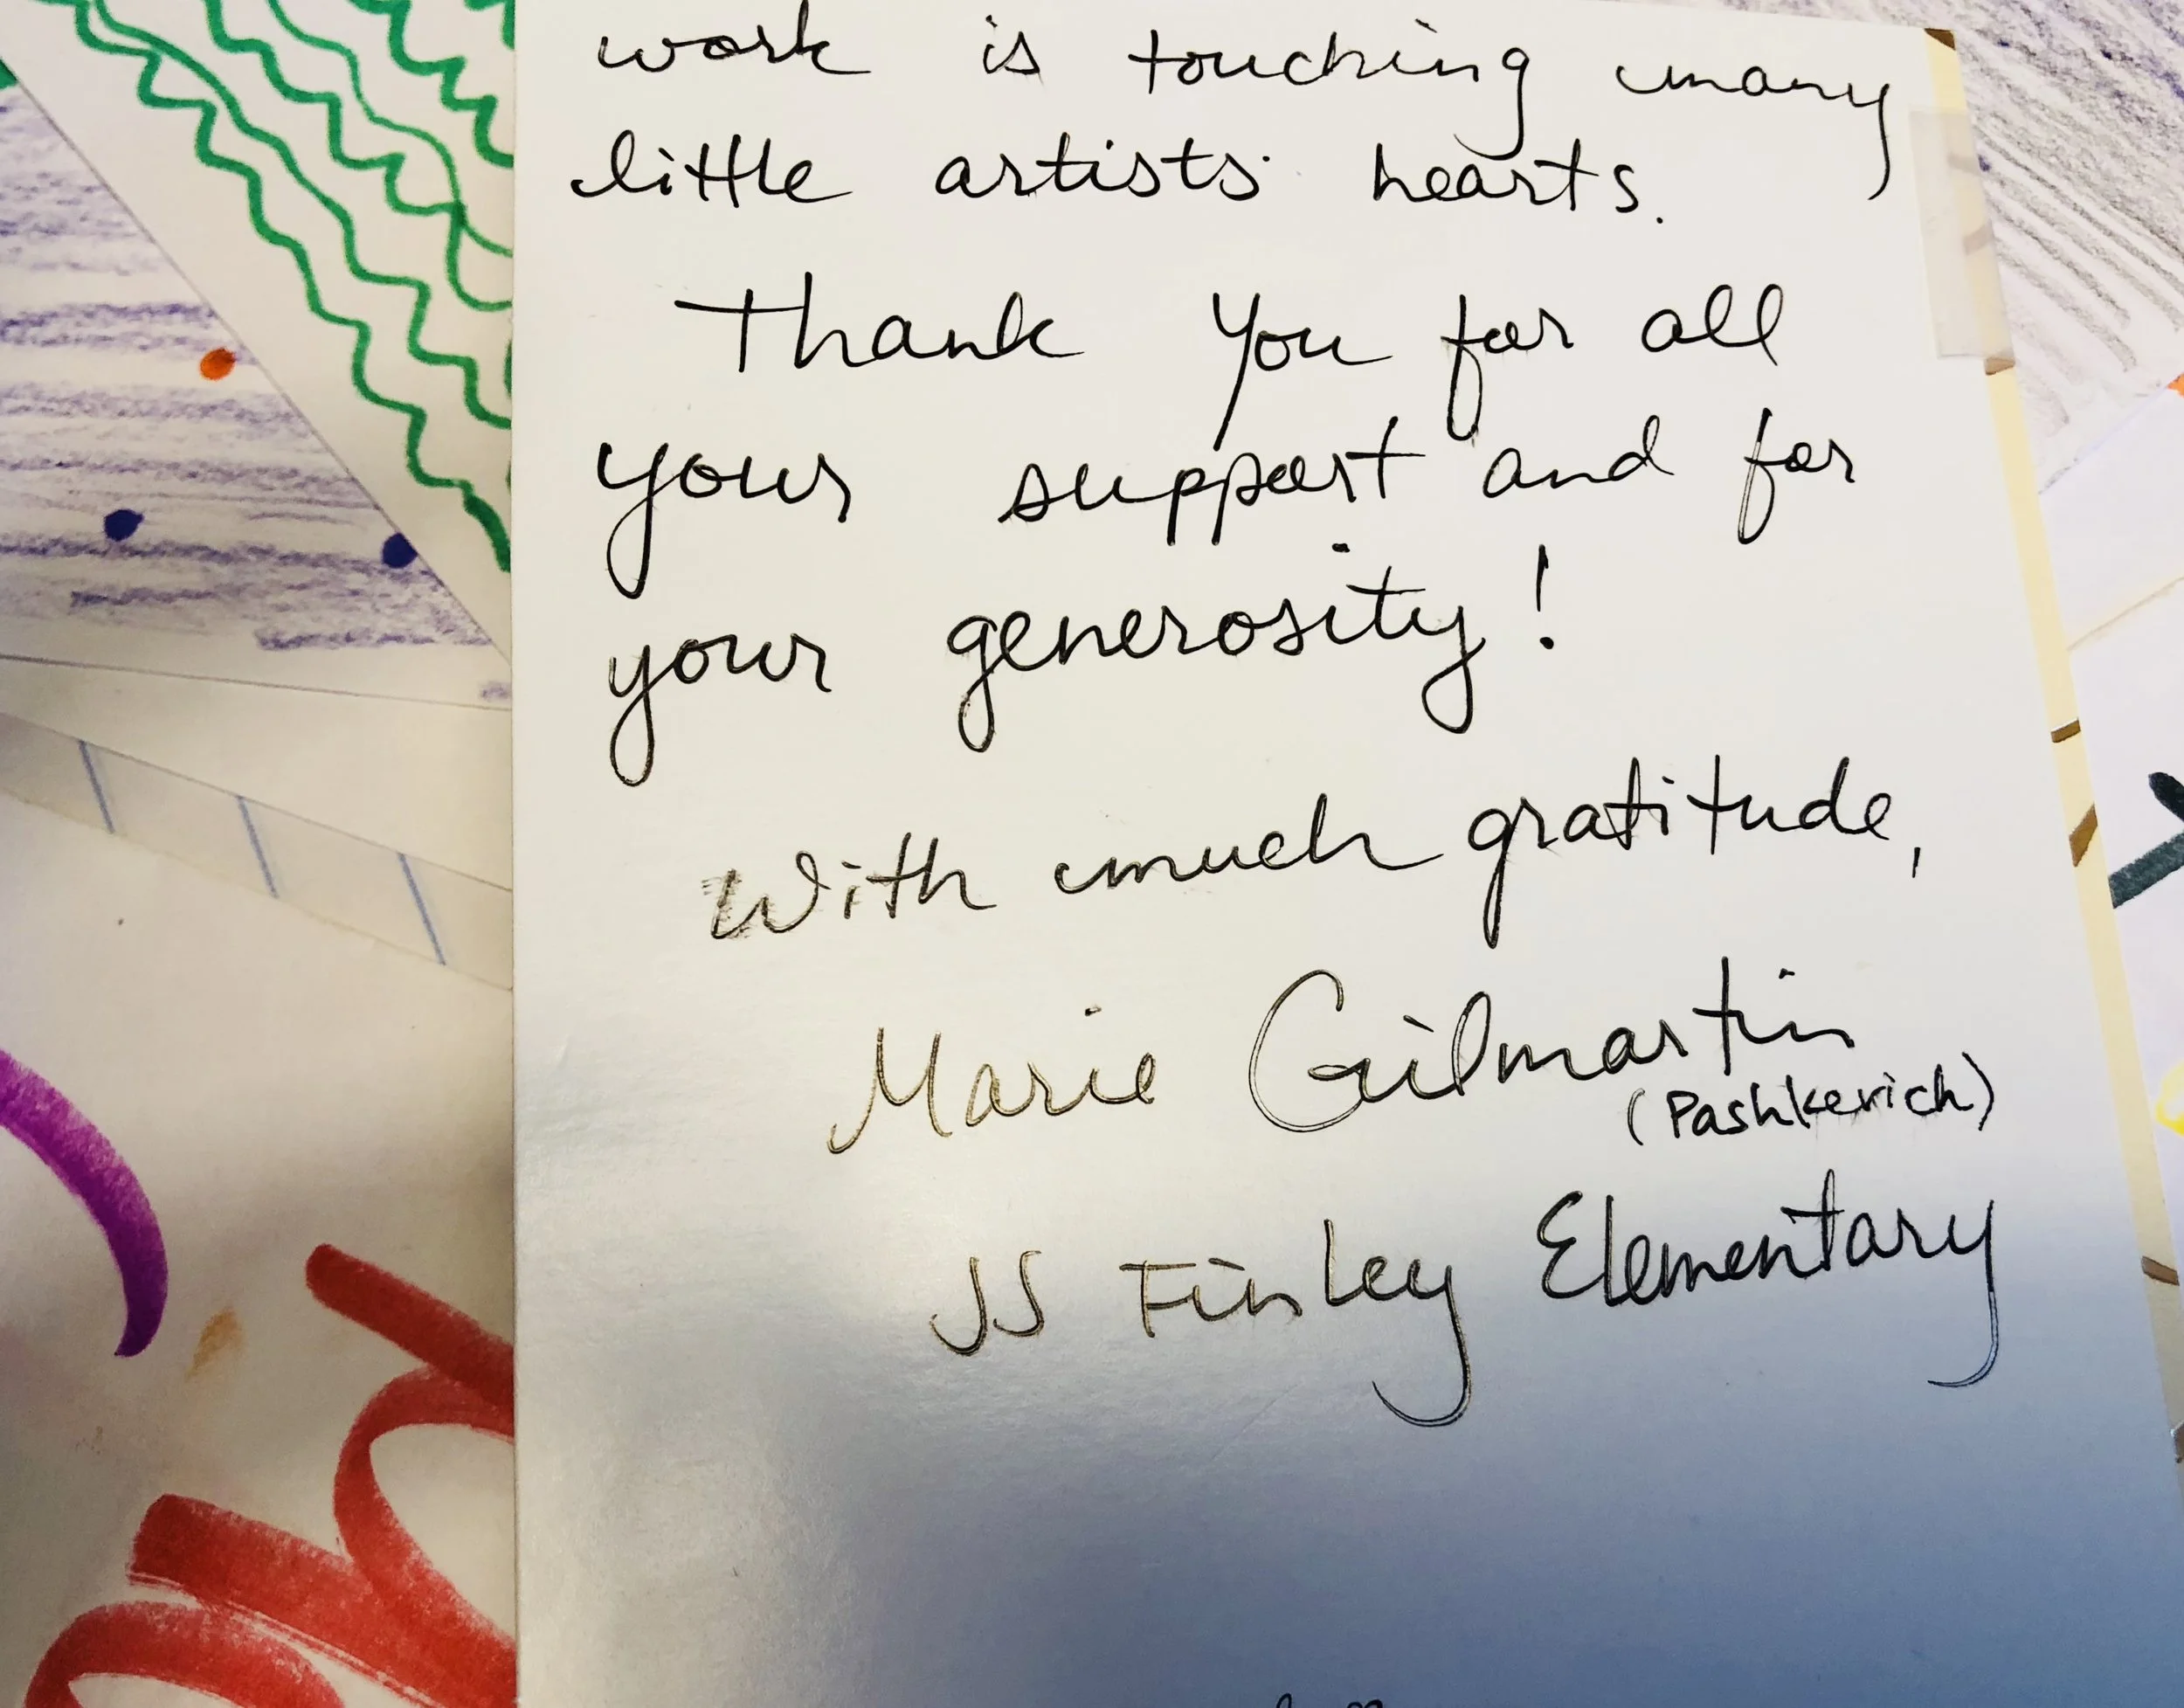 work is touching many
little artists' hearts.
Thank you for all
your support and for
your generosity!
With much gratitude,
Marie Gilmartin
(Pashkevich)
JS Finley Elementary